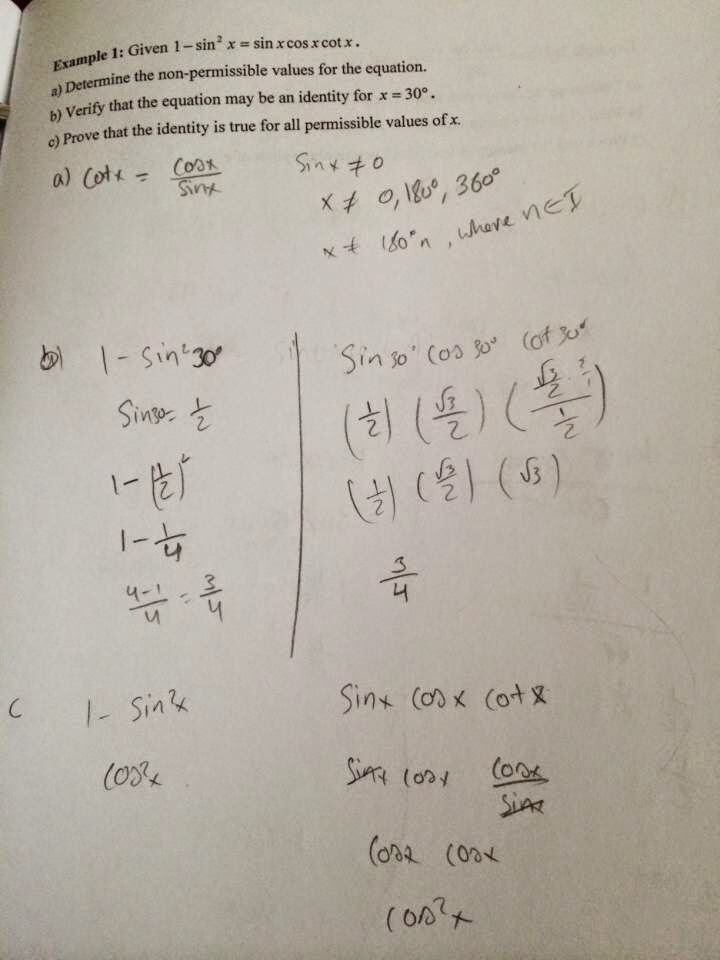 Example 1: Given 1 − sin² x = sin x cos x cot x.
a) Determine the non-permissible values for the equation.
b) Verify that the equation may be an identity for x = 30°.
c) Prove that the identity is true for all permissible values of x.
a) cotx = cosx/sinx    Sinx ≠ 0
x ≠ 0, 180°, 360°
x ≠ 180°n, where n∈I
b) 1 − sin²30°    Sin30° cos30° cot30°
Sin30 = 1/2    (1/2) (√3/2) ((√3/2 · 2/1)/(1/2))
1 − (1/2)²    (1/2) (√3/2) (√3)
1 − 1/4
(4−1)/4 = 3/4    3/4
c    1 − Sin²x    Sinx cosx cotx
cos²x    Sinx cosx cosx/sinx
cosx cosx
cos²x